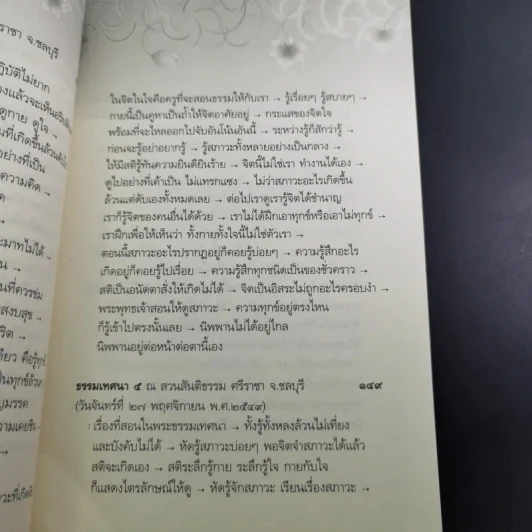 ราชา จ.ชลบุรี
ฏิบัติไม่ยาก
ดูกาย ดูใจ →
อย่างที่เป็น
ความคิด →
ะมาทไม่ได้ →
สงบสุข →
ริต →
ญมรรค
ในจิตในใจคือครูที่จะสอนธรรมให้กับเรา → รู้เรื่อยๆ รู้สบายๆ →
กายนี้เป็นคูหาเป็นถ้ำให้จิตอาศัยอยู่ → กระแสของจิตใจ
พร้อมที่จะไหลออกไปจับอันโน้นอันนี้ → ระหว่างรู้ก็สักว่ารู้ →
ก่อนจะรู้อย่าอยากรู้ → รู้สภาวะทั้งหลายอย่างเป็นกลาง →
ให้มีสติรู้ทันความยินดียินร้าย → จิตนี้ไม่ใช่เรา ทำงานได้เอง →
ดูไปอย่างที่เค้าเป็น ไม่แทรกแซง → ไม่ว่าสภาวะอะไรเกิดขึ้น
ล้วนแต่ดับเองทั้งหมดเลย → ต่อไปเราดูเรารู้จิตได้ชำนาญ
เราก็รู้จิตของคนอื่นได้ด้วย → เราไม่ได้ฝึกเอาทุกข์หรือเอาไม่ทุกข์ →
เราฝึกเพื่อให้เห็นว่า ทั้งกายทั้งใจนี้ไม่ใช่ตัวเรา →
ตอนนี้สภาวะอะไรปรากฏอยู่ก็คอยรู้บ่อยๆ → ความรู้สึกอะไร
เกิดอยู่ก็คอยรู้ไปเรื่อย → ความรู้สึกทุกชนิดเป็นของชั่วคราว →
สติเป็นอนัตตาสั่งให้เกิดไม่ได้ → จิตเป็นอิสระไม่ถูกอะไรครอบงำ →
พระพุทธเจ้าสอนให้ดูสภาวะ → ความทุกข์อยู่ตรงไหน
ก็รู้เข้าไปตรงนั้นเลย → นิพพานไม่ได้อยู่ไกล
นิพพานอยู่ต่อหน้าต่อตานี้เอง
ธรรมเทศนา ๕ ณ สวนสันติธรรม ศรีราชา จ.ชลบุรี ๑๔๙
(วันจันทร์ที่ ๒๗ พฤศจิกายน พ.ศ.๒๕๔๙)
: เรื่องที่สอนในพระธรรมเทศนา → ทั้งรู้ทั้งหลงล้วนไม่เที่ยง
และบังคับไม่ได้ → หัดรู้สภาวะบ่อยๆ พอจิตจำสภาวะได้แล้ว
สติจะเกิดเอง → สติระลึกรู้กาย ระลึกรู้ใจ กายกับใจ
ก็แสดงไตรลักษณ์ให้ดู → หัดรู้จักสภาวะ เรียนเรื่องสภาวะ →